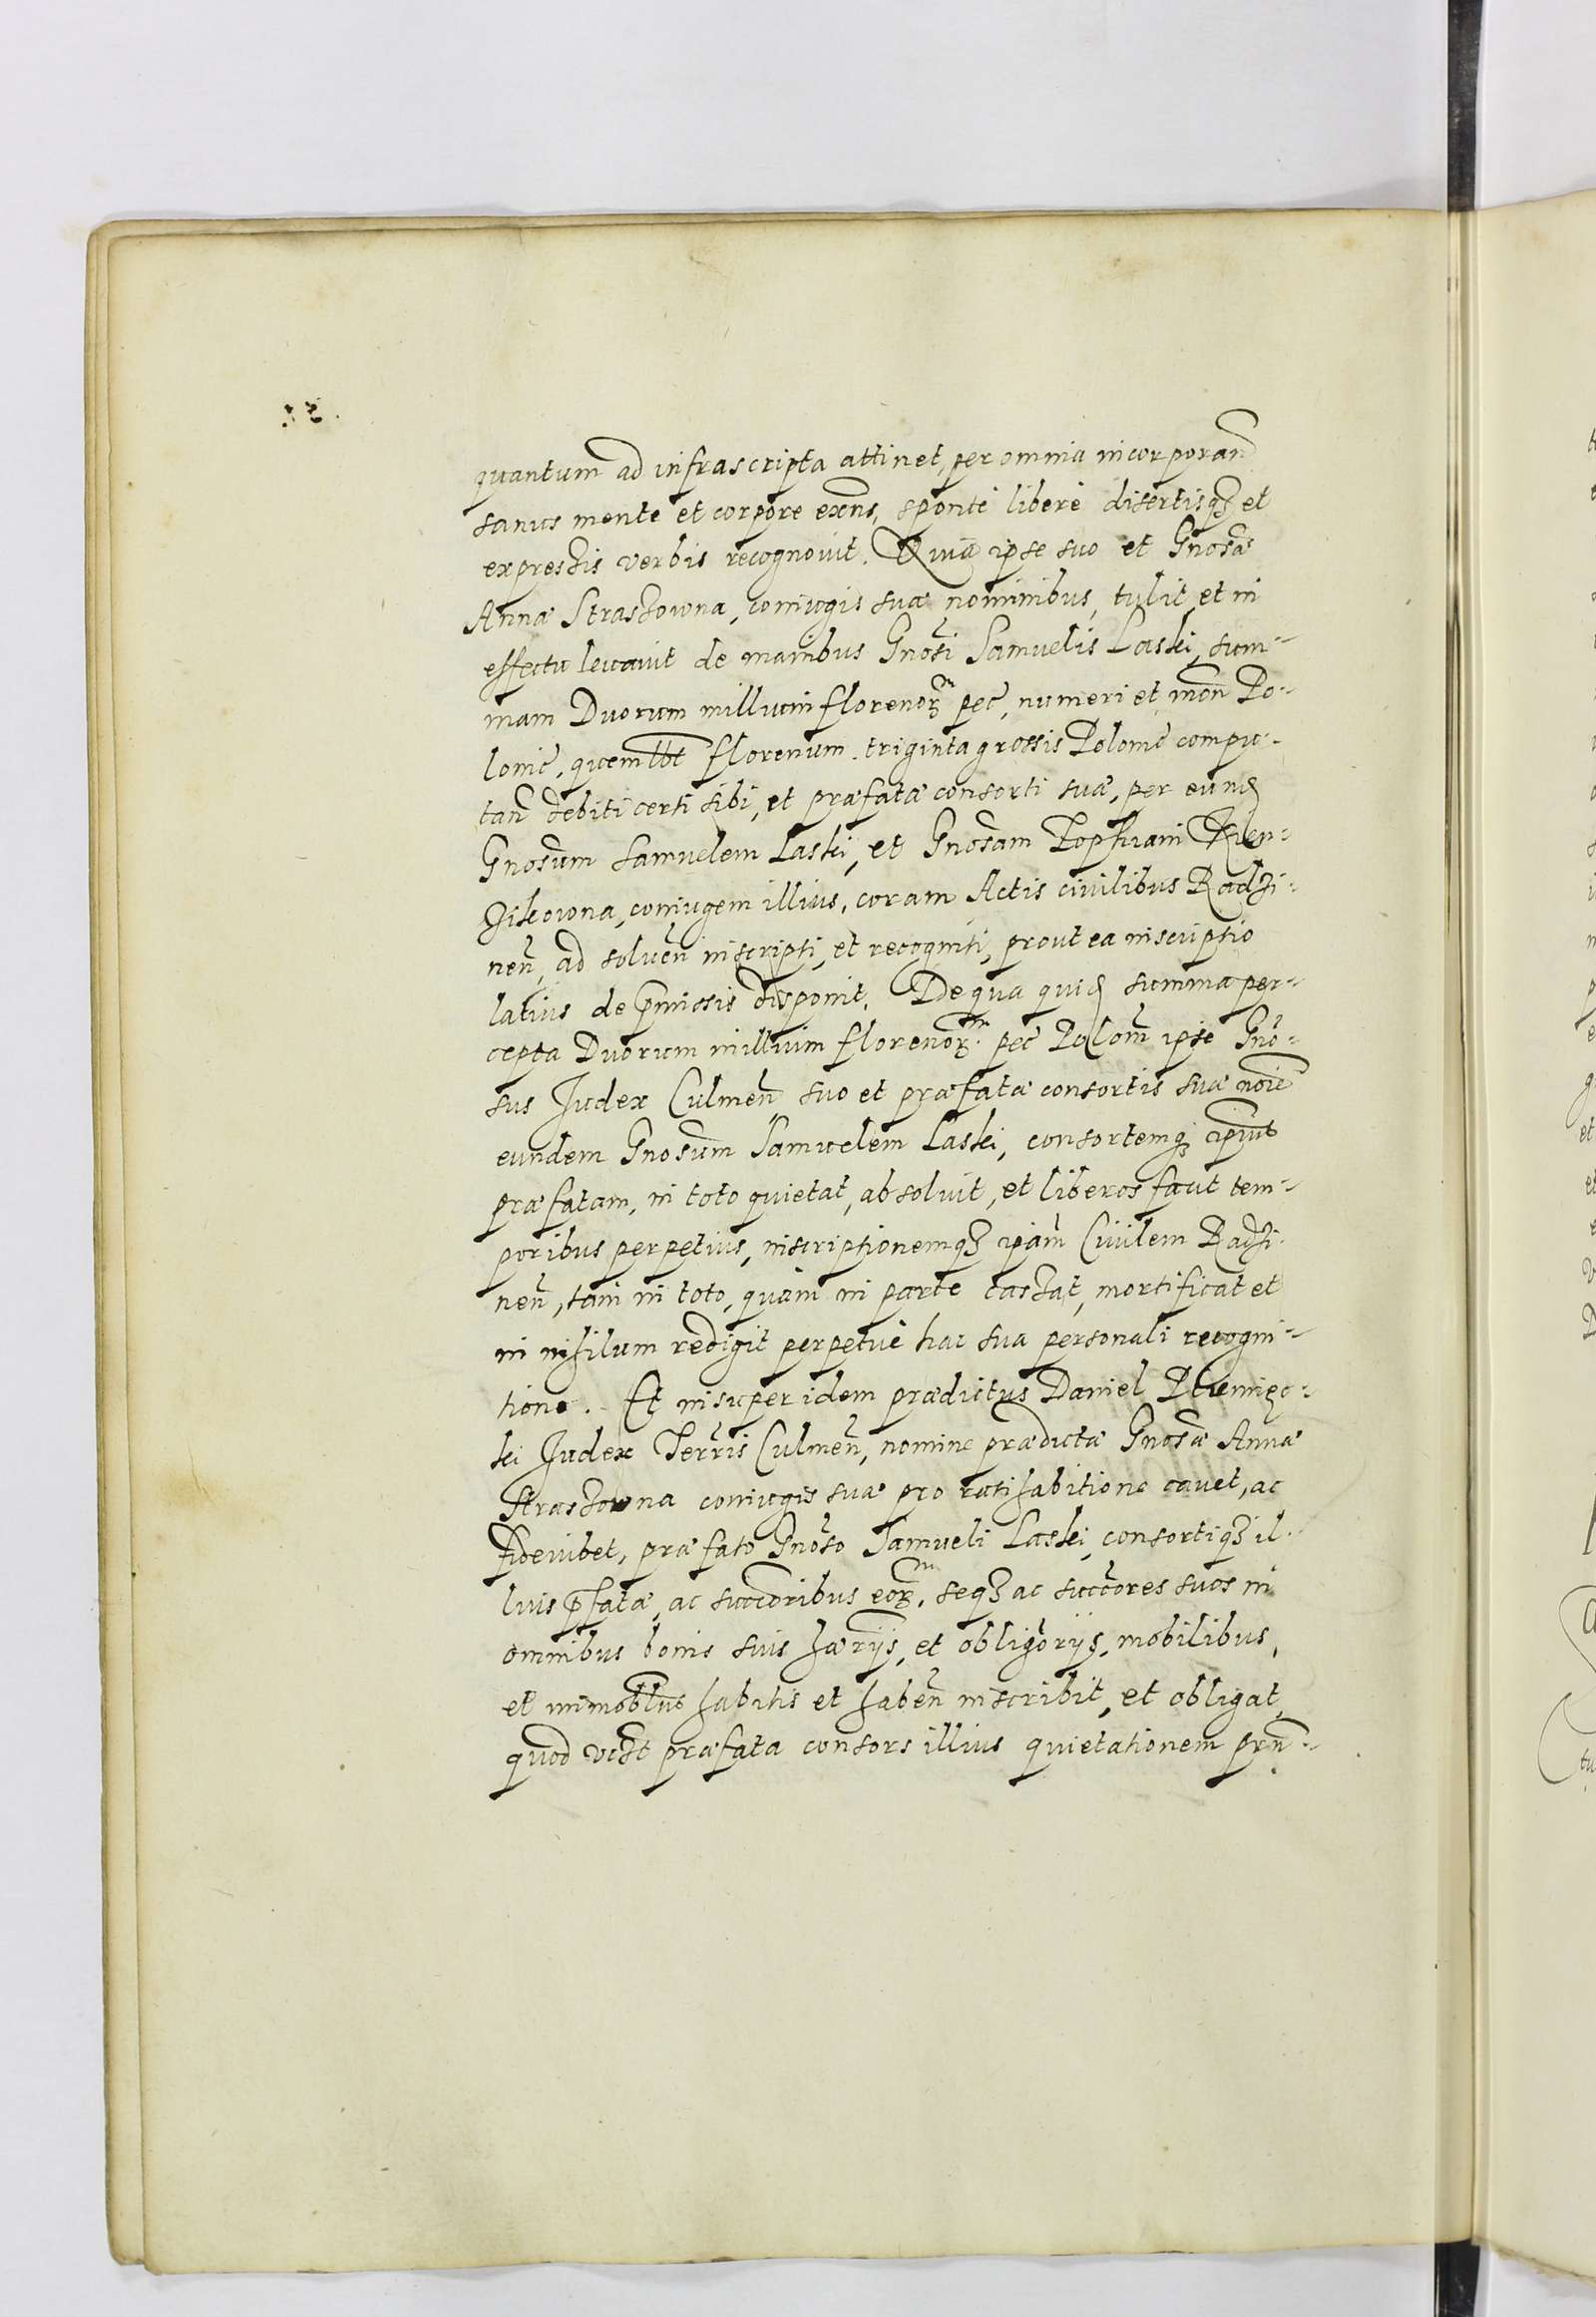 quantum ad infrascripta attinet, per omnia incorporan̄
sanus mente et corpore exn̄s, sponte libere disertisqȝ et
expressis verbis recognovit. Quia ipse suo et Gnosæ
Annæ Straszowna, coniugis suæ nominibus, tulit et in
effectu levavit de manibus Gnosi Samuelis Laski, sum-
mam Duorum millium florenorꝝ pec̄, numeri et mon̄ Po-
lonic̄, quemlbt florenum triginta grossis Polonic̄ compu-
tan̄ debiti certi sibi, et præfatæ consorti suæ, per eund
Gnosum Samuelem Laski, et Gnosam Zophiam
coniugem illius, coram Actis civilibus Radzi-
nen̄, ad solven̄ inscripti, et recogniti, prout ea inscriptio
latius de p̄missis disponit. De qua quid summa per-
cepta Duorum millium florenorꝝ pec̄ Polon̄ ipse Gno-
sus Judex Culmen̄, suo et præfatæ consortis suæ noīe
eundem Gnosum Samuelem Laski, consortemqȝ ipius
præfatam, in toto quietat, absolvit, et liberos facit tem-
poribus perpetuis, inscriptionemqȝ ipam̄ Civilem Radzi-
nen̄, tam in toto, quàm in parte cassat, mortificat et
in nihilum redigit perpetuè hac sua personali recogni-
tione. Et insuper idem prædictus Daniel
ki Judex Terr̄ris Culmen̄, nomine prædictæ Gnosæ Annæ
Straszowna coniugis suæ pro ratihabitione cavet, ac
fideiubet, præfato Gnoso Samueli Laski, consortiqȝ il-
lius p̄fatæ, ac succoribus eorꝝ, seqȝ ac succores suos in
omnibus bonis suis hærijs, et obligorijs, mobilibus,
et immoblbus habitis et haben̄ inscribit, et obligat,
quod præfata consors illius quietationem prn̄-